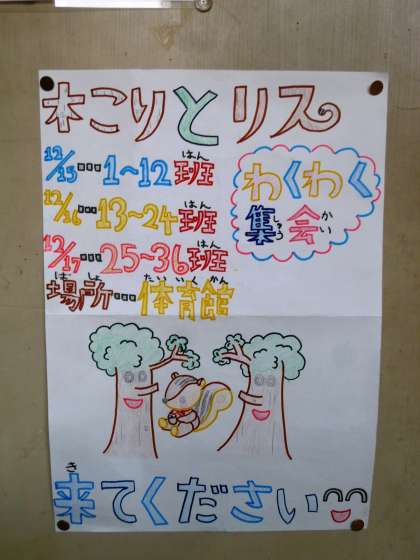 木こりとリス
12/15…1~12班
はん
わくわく
集会
しゅう かい
12/16…13~24班
はん
12/17…25~36班
はん
場所…体育館
ばしょ たいいくかん
来てください
き